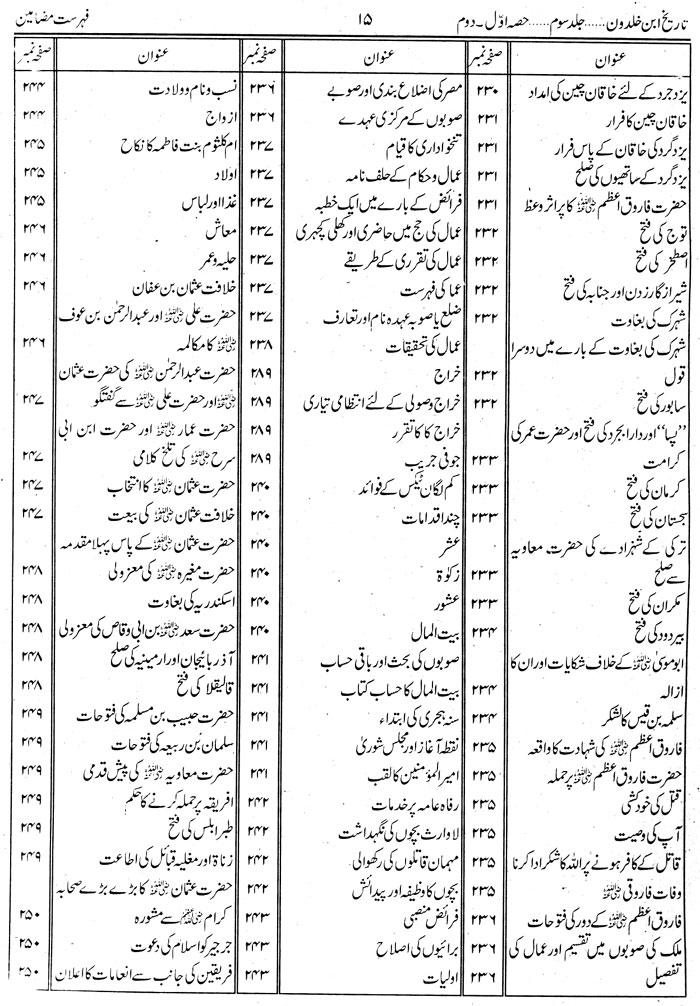 تاریخ ابن خلدون......جلد سوم......حصہ اوّل۔دوم ۱۵ فہرست مضامین
عنوان صفحہ نمبر
یزدجرد کے لئے خاقان چین کی امداد ۲۳۰
خاقان چین کا فرار ۲۳۱
یزدگرد کی خاقان کے پاس فرار ۲۳۱
یزدگرد کے ساتھیوں کی صلح ۲۳۱
حضرت فاروق اعظم ﷺ کا پراثر وعظ ۲۳۱
توج کی فتح ۲۳۲
اصطخر کی فتح ۲۳۲
شیراز گارزدن اور جنابہ کی فتح ۲۳۲
شہرک کی بغاوت ۲۳۲
شہرک کی بغاوت کے بارے میں دوسرا
قول ۲۳۲
سابور کی فتح ۲۳۲
"پسا" اور دارابجرد کی فتح اور حضرت عمر کی
کرامت ۲۳۳
کرمان کی فتح ۲۳۳
سجستان کی فتح ۲۳۳
ترکی کے شہزادے کی حضرت۔ معاویہ
سے صلح ۲۳۳
مکران کی فتح ۲۳۳
بیرود کی فتح ۲۳۴
ابوموسیٰ ﷺ کے خلاف شکایات اور ان کا
ازالہ ۲۳۴
سلمہ بن قیس کا لشکر ۲۳۴
فاروق اعظم ﷺ کی شہادت کا واقعہ ۲۳۵
حضرت فاروق اعظم ﷺ پر حملہ ۲۳۵
قتل کی خودکشی ۲۳۵
آپ کی وصیت ۲۳۵
قاتل کے کافر ہونے پر اللہ کا شکر ادا کرنا ۲۳۵
وفات فاروقی ﷺ ۲۳۵
فاروق اعظم ﷺ کے دور کی فتوحات ۲۳۶
ملک کی صوبوں میں تقسیم اور عمال کی ۲۳۶
تفصیل ۲۳۶
عنوان صفحہ نمبر
مصر کی اضلاع بندی اور صوبے ۲۳۶
صوبوں کے مرکزی عہدے ۲۳۶
تنخواداری کا قیام ۲۳۷
عمال و حکام کے حلف نامہ ۲۳۷
فرائض کے بارے میں ایک خطبہ ۲۳۷
عمال کی حج میں حاضری اور کھلی کچہری ۲۳۷
عمال کی تقرری کے طریقے ۲۳۷
عما کی فہرست ۲۳۷
ضلع یا صوبہ عہدہ نام اور تعارف ۲۳۷
عمال کی تحقیقات ۲۳۸
خراج ۲۸۹
خراج وصولی کے لئے انتظامی تیاری ۲۸۹
خراج کا کا تقرر ۲۸۹
جونی جریب ۲۸۹
کم لگان ٹیکس کے فوائد ۲۴۰
چند اقدامات ۲۴۰
عشر ۲۴۰
زکوٰۃ ۲۴۰
عشور ۲۴۰
بیت المال ۲۴۰
صوبوں کی بحث اور باقی حساب ۲۴۱
بیت المال کا حساب کتاب ۲۴۱
سنہ ہجری کی ابتداء ۲۴۱
نقطۂ آغاز اور مجلس شوریٰ ۲۴۱
امیر المؤمنین کا لقب ۲۴۱
رفاہ عامہ پر خدمات ۲۴۲
لاوارث بچوں کی نگہداشت ۲۴۲
مہمان قاتلوں کی رکھوالی ۲۴۲
بچوں کا وظیفہ اور پیدائش ۲۴۲
فرائض منصبی ۲۴۳
برائیوں کی اصلاح ۲۴۳
اولیات ۲۴۳
عنوان صفحہ نمبر
نسب و نام و ولادت ۲۴۴
ازواج ۲۴۴
ام کلثوم بنت فاطمہ کا نکاح ۲۴۵
اولاد ۲۴۵
غذا اور لباس ۲۴۵
معاش ۲۴۶
حلیہ و عمر ۲۴۶
خلافت عثمان بن عفان ۲۴۶
حضرت علی ﷺ اور عبدالرحمٰن بن عوف
ﷺ کا مکالمہ ۲۴۶
حضرت عبدالرحمٰن ﷺ کی حضرت عثمان
ﷺ اور حضرت علی ﷺ سے گفتگو ۲۴۷
حضرت عمار ﷺ اور حضرت ابن ابی
سرح ﷺ کی تلخ کلامی ۲۴۷
حضرت عثمان ﷺ کا انتخاب ۲۴۷
خلافت عثمان ﷺ کی بیعت ۲۴۷
حضرت عثمان ﷺ کے پاس پہلا مقدمہ
حضرت مغیرہ ﷺ کی معزولی ۲۴۸
اسکندریہ کی بغاوت ۲۴۸
حضرت سعد ﷺ بن ابی وقاص کی معزولی ۲۴۸
آذربائیجان اور ارمینیہ کی صلح ۲۴۸
قالیقلا کی فتح ۲۴۸
حضرت حبیب بن مسلمہ کی فتوحات ۲۴۹
سلمان بن ربیعہ کی فتوحات ۲۴۹
حضرت معاویہ ﷺ کی پیش قدمی ۲۴۹
افریقہ پر حملہ کرنے کا حکم ۲۴۹
طبرابلس کی فتح ۲۴۹
زناۃ اور مغلیہ قبائل کی اطاعت ۲۴۹
حضرت عثمان ﷺ کا بڑے بڑے صحابہ
کرام ﷺ سے مشورہ ۲۵۰
جرجیر کو اسلام کی دعوت ۲۵۰
فریقین کی جانب سے انعامات کا اعلان ۲۵۰